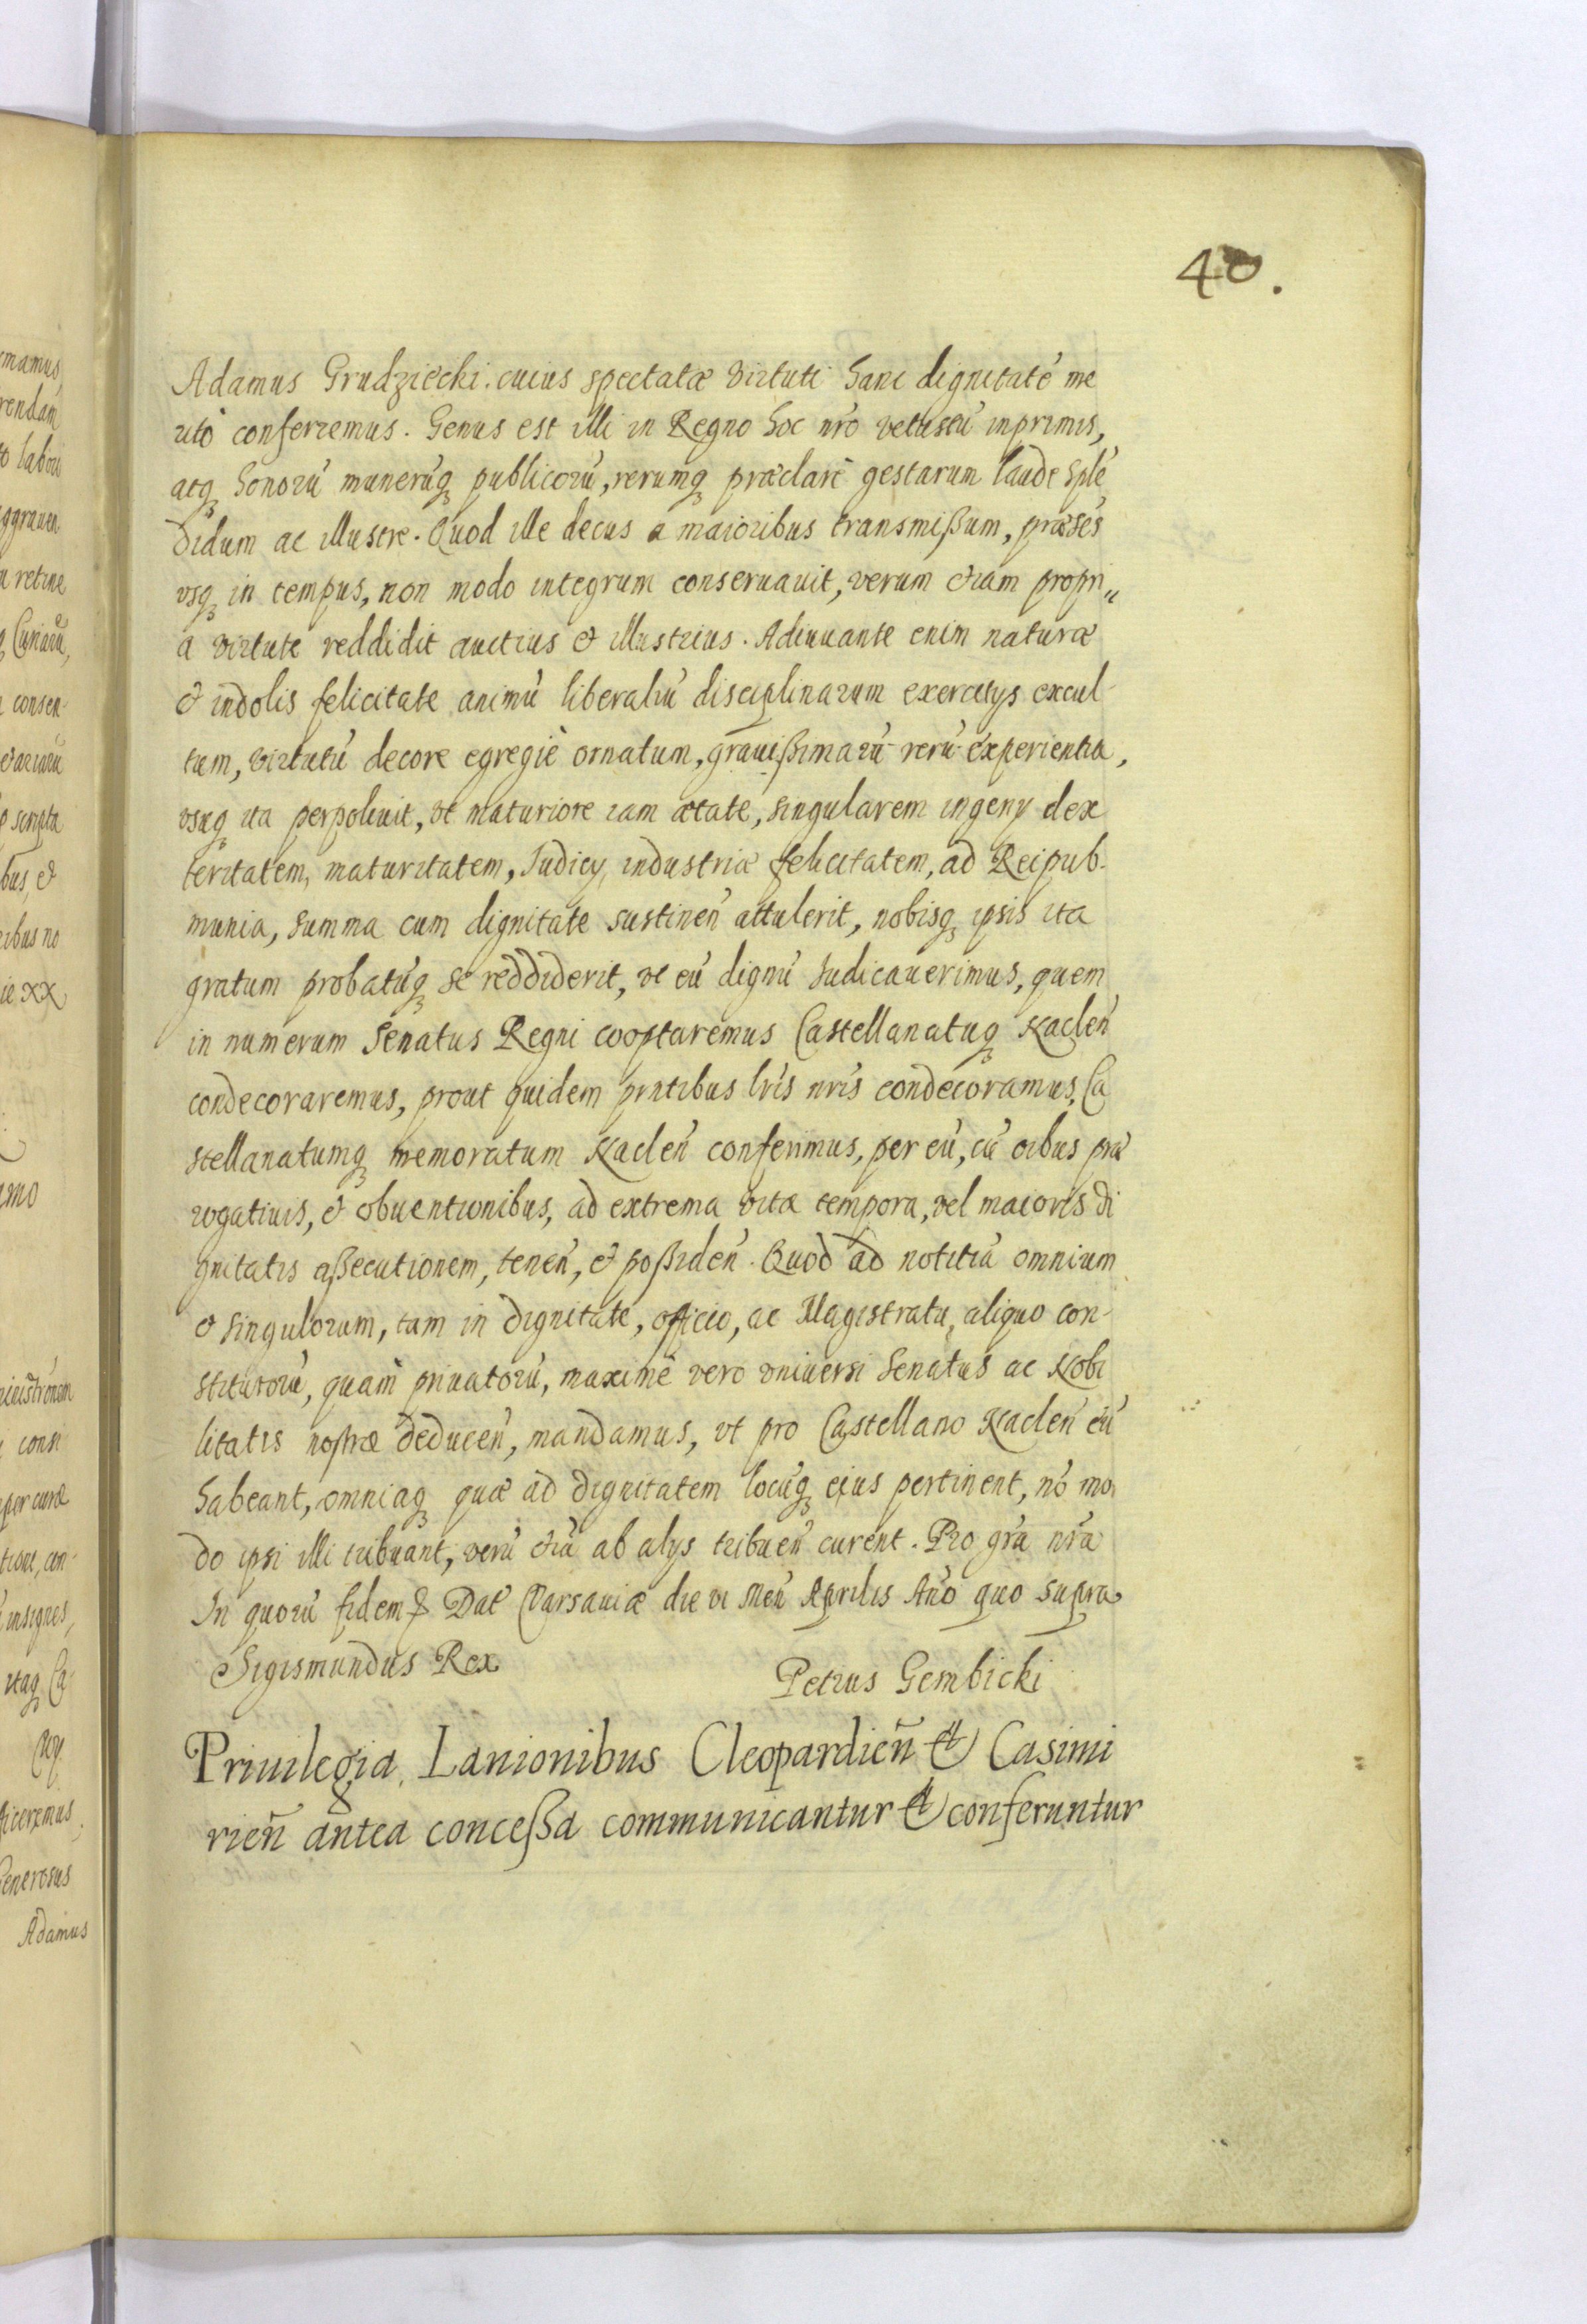 40.
Adamus Grudziecki. cuius spectatæ virtuti hanc dignitatē me
ritò conferremus. Genus est illi in Regno hoc nr̄o vetustū inprimis,
atq honorū munerūq publicorū, rerumq præclarè gestarum laude splē
didum ac illustre. Quod ille decus a maioribus transmißum, præsēs
vsq in tempus, non modo integrum conseruauit, verum etiam propri„
a virtute reddidit auctius & illustrius. Adiuuante enim naturæ
& indolis felicitate animū liberaliū disciplinarum exercitys excul-
tum, virtutū decore egregiè ornatum, grauißimarū rerū experientia,
vsuq ita perpoliuit, vt maturiore iam ætate, singularem ingeny dex
teritatem, maturitatem, Iudicy, industriæ felicitatem, ad Reipub.
munia, summa cum dignitate sustineñ attulerit, nobisq ipsis ita
gratum probatūq se reddiderit, vt eū dignū Iudicauerimus, quem
in numerum Senatus Regni cooptaremus Castellanatuq Nacleñ
condecoraremus, prout quidem pr̄ntibus lr̄is nr̄is condecoramus, Ca
stellanatumq memoratum Nacleñ conferimus, per eū, cū oībus præ
rogatiuis, & obuentionibus, ad extrema vitæ tempora, vel maioris di
gnitatis aßecutionem, teneñ, & poßideñ. Quod ad notitiā omnium
& singulorum, tam in dignitate, officio, ac Magistratu, aliquo con-
stitutorū, quàm priuatorū, maximè vero vniuersi Senatus ac Nobi
litatis nostræ deduceñ, mandamus, vt pro Castellano Nacleñ eū
habeant, omniaq quæ ad dignitatem locūq ejus pertinent, nō mo
do ipsi illi tribuant, verū etiā ab alys tribueñ curent. Pro gr̄a nr̄a
In quorū fidem & Dat Varsauiæ die vi Meñ Aprilis Ano quo supra
Sigismundus Rex
Petrus Gembicki
Priuilegia Lanionibus Cleopardieñ et Casimi
rieñ antea conceßa communicantur et conferuntur